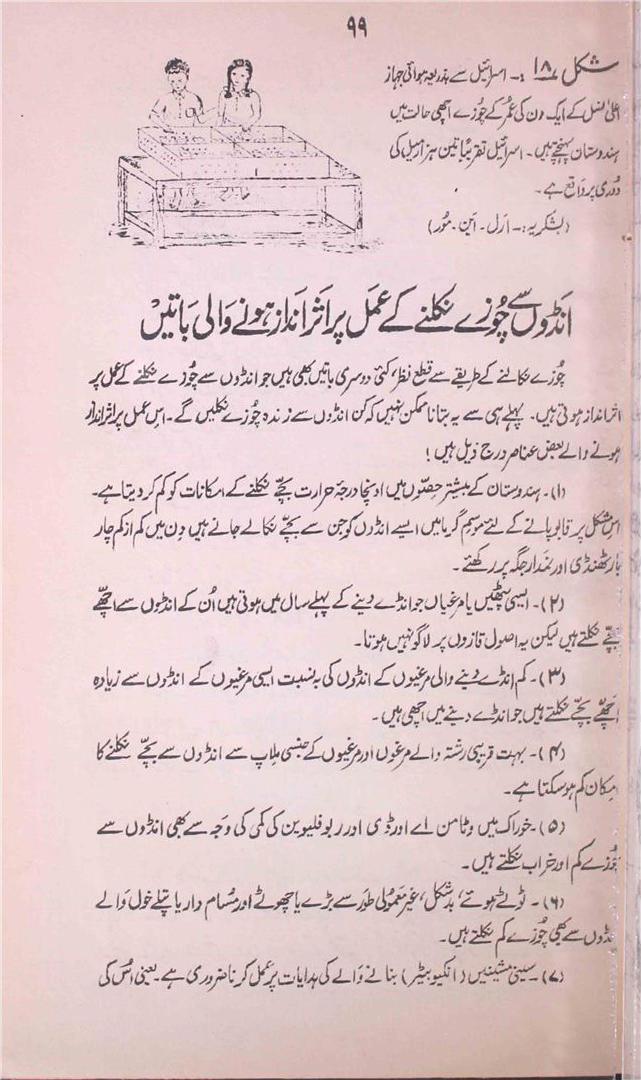 ۹۹
شکل ۱۸ :۔ اسرائیل سے بذریعہ ہوائی جہاز
اعلیٰ نسل کے ایک دن کی عمر کے چوزے اچھی حالت میں
ہندوستان پہنچتے ہیں۔ اسرائیل تقریباً تین ہزار میل کی
دوری پر واقع ہے۔
(بشکریہ:۔ ارل۔ این۔ مُور)
انڈوں سے چُوزے نکلنے کے عمل پر اثر انداز ہونے والی باتیں
چُوزے نکالنے کے طریقے سے قطع نظر، کئی دوسری باتیں بھی ہیں جو انڈوں سے چُوزے نکلنے کے عمل پر
اثر انداز ہوتی ہیں۔ پہلے ہی سے یہ بتانا ممکن نہیں کہ کن انڈوں سے زندہ چُوزے نکلیں گے۔ اس عمل پر اثر انداز
ہونے والے بعض عناصر درج ذیل ہیں!
(۱)۔ ہندوستان کے بیشتر حصّوں میں اونچا درجۂ حرارت بچّے نکلنے کے امکانات کو کم کر دیتا ہے۔
اس مشکل پر قابو پانے کے لئے موسم گرما میں ایسے انڈوں کو جن سے بچّے نکالے جانے ہیں دن میں کم از کم چار
بار ٹھنڈی اور نمدار جگہ پر رکھئے۔
(۲)۔ ایسی پٹھیں یا مرغیاں جو انڈے دینے کے پہلے سال میں ہوتی ہیں اُن کے انڈوں سے اچھے
بچّے نکلتے ہیں لیکن یہ اصول قازوں پر لاگو نہیں ہوتا۔
(۳)۔ کم انڈے دینے والی مرغیوں کے انڈوں کی بہ نسبت ایسی مرغیوں کے انڈوں سے زیادہ
اچھے بچّے نکلتے ہیں جو انڈے دینے میں اچھی ہیں۔
(۴)۔ بہت قریبی رشتہ والے مرغوں اور مرغیوں کے جنسی ملاپ سے انڈوں سے بچّے نکلنے کا
امکان کم ہو سکتا ہے۔
(۵)۔ خوراک میں وٹامن اے اور ڈی اور ربوفلیوین کی کمی کی وجہ سے بھی انڈوں سے
چُوزے کم اور خراب نکلتے ہیں۔
(۶)۔ ٹوٹے ہوئے، بد شکل، غیر معمولی طور سے بڑے یا چھوٹے اور مُسام دار یا پتلے خول والے
انڈوں سے بھی چُوزے کم نکلتے ہیں۔
(۷)۔ سینی مشینیں (انکیوبیٹر) بنانے والے کی ہدایات پر عمل کرنا ضروری ہے۔ یعنی اُس کی